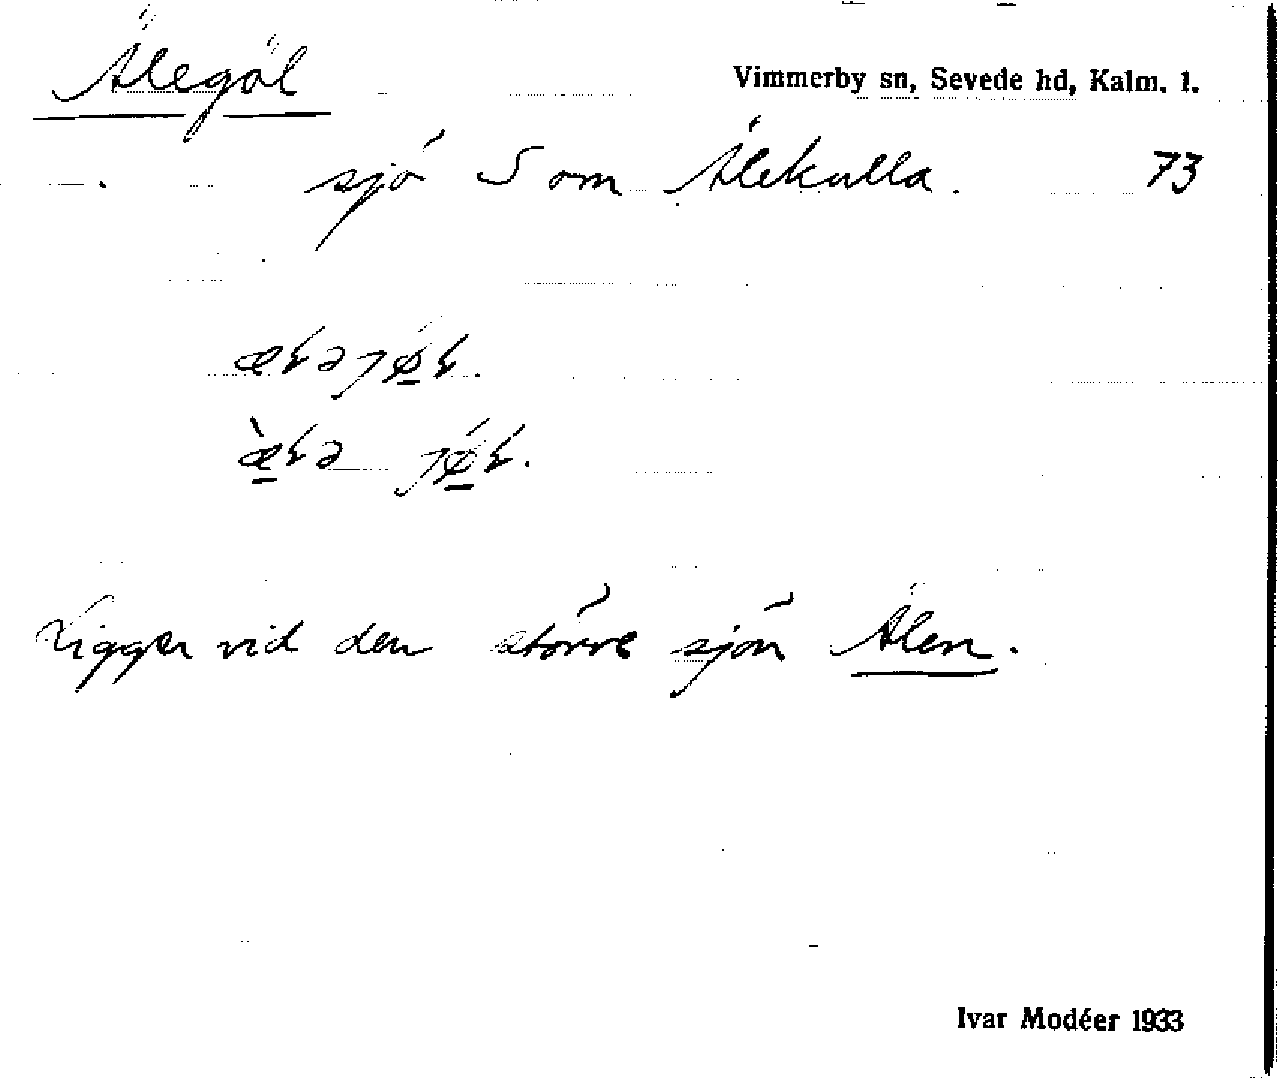 Älegöl
Vimmerby sn, Sevede hd, Kalm. l.
sjö S om Älekulla. 73
Ligger vid den större sjön Älen.
Ivar Modéer 1933